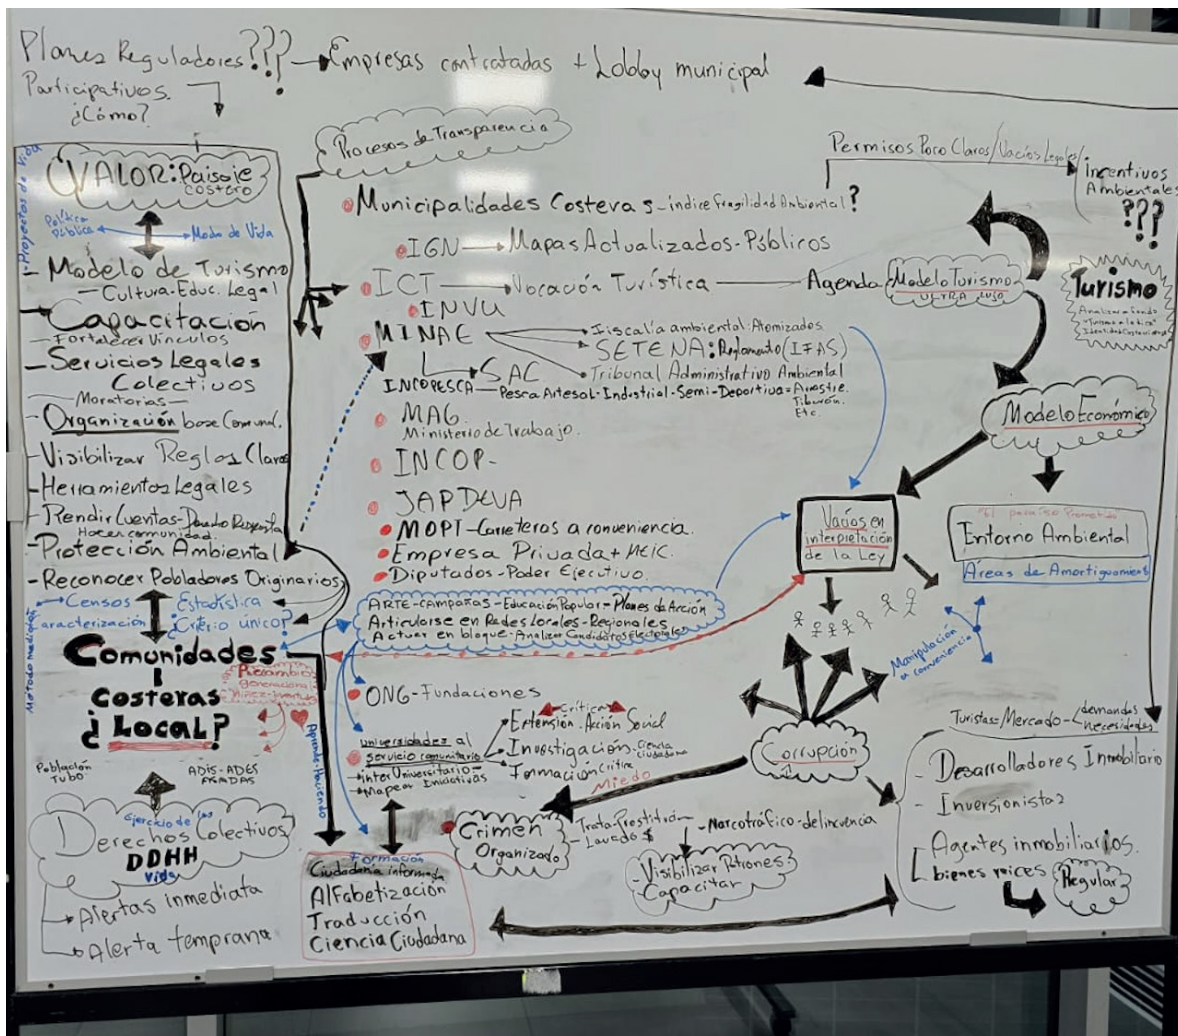 Planes Reguladores??? → Empresas contratadas + Lobby municipal
Participativos.
¿Cómo?
Proyectos de Vida
VALOR: Paisaje
costero
Política
Pública
Modo de Vida
- Modelo de Turismo
- Cultura-Educ. Legal
Capacitación
- Fortalecer Vínculos
- Servicios Legales
Colectivos
- Moratorias -
- Organización base Comunal.
- Visibilizar Reglas Claras
- Herramientas Legales
- Rendir Cuentas-Derecho Respuesta
Hacen comunidad.
- Protección Ambiental
- Reconocer Pobladores Originarios
Censos
Caracterización
Estadística
¿Criterio único?
Comunidades
Costeras
¿Local?
Recambio
generacional
Niñez-Juventud
Aprende-Haciendo
Población
Tubo
ADIS-ADES
ASADAS
Ejercicio de los
Derechos Colectivos
DDHH
Vida
Alertas inmediata
Alerta temprana
Procesos de Transparencia
Municipalidades Costeras - indice Fragilidad Ambiental?
IGN → Mapas Actualizados-Públicos
ICT → Vocación Turística - Agenda
INVU
MINAE
Fiscalía ambiental: Atomizados
SETENA: Reglamento (IFAS)
Tribunal Administrativo Ambiental
SAC
INCOPESCA - Pesca Artesal-Industrial-Semi-Deportiva = Arrastre.
Tiburón.
Etc.
MAG.
Ministerio de Trabajo.
INCOP-
JAPDEVA
MOPT-Carreteras a conveniencia.
Empresa Privada + MEIC.
Diputados-Poder Ejecutivo.
ARTE-CAMPAÑAS-Educación Popular-Planes de Acción
Articularse en Redes Locales-Regionales
Actuar en bloque-Analizar Candidatos Electorales
ONG-Fundaciones
universidades al
servicio comunitario
interUniversitario
Mapear Iniciativas
Crítica
Extensión-Acción Social
Investigación-Ciencia
Ciudadana
Formación Crítica
Miedo
Formación
Ciudadanía informada
Alfabetización
Traducción
Ciencia Ciudadana
Crimen
Organizado
- Trata-Prostitución
- Lavado $
- Narcotráfico-delincuencia
- Visibilizar Patrones
- Capacitar
Permisos Poco Claros/Vacíos Legales/
Incentivos
Ambientales
???
Modelo Turismo
ULTRA LUJO
Turismo
Analizar a fondo
Modelo Económico
Vacíos en
interpretación
de la Ley
"El paraíso Prometido
Entorno Ambiental
Áreas de Amortiguamiento
Manipulación
a conveniencia
Corrupción
Turistas-Mercado-
demandas
necesidades
- Desarrolladores Inmobiliario
- Inversionistas
Agentes inmobiliarios.
bienes raíces
Regular